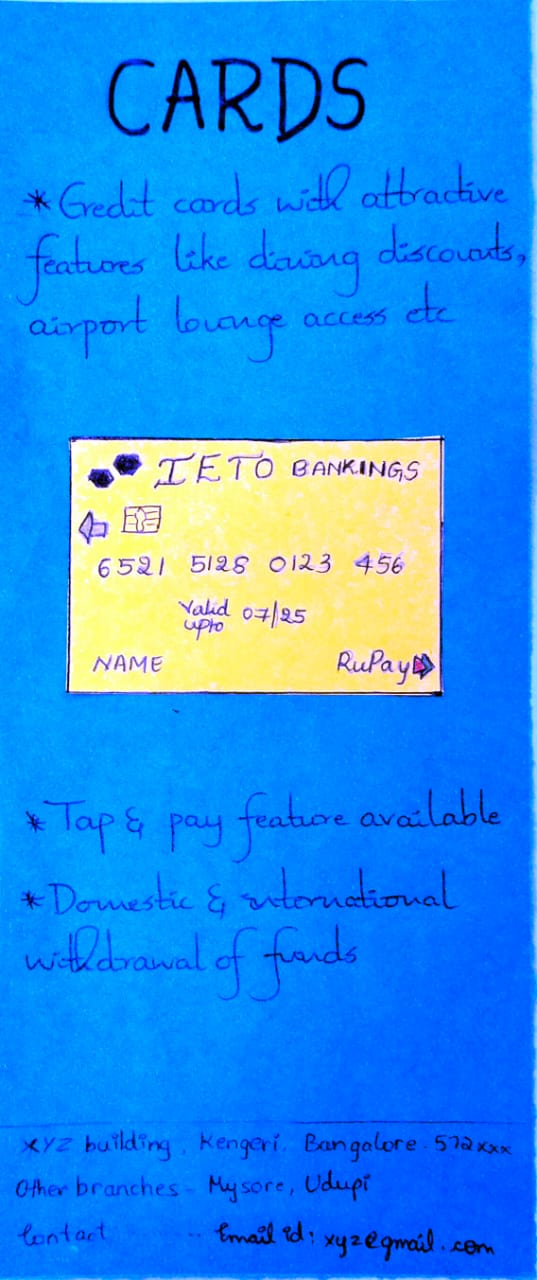 CARDS
* Credit cards with attractive
features like dining discounts,
airport lounge access etc
IETO BANKINGS
6521 5128 0123 456
Valid
upto 07/25
NAME RuPay
* Tap & pay feature available
* Domestic & international
withdrawal of funds
XYZ building, Kengeri, Bangalore - 572xxx
Other branches - Mysore, Udupi
Contact Email id: xyz@gmail.com